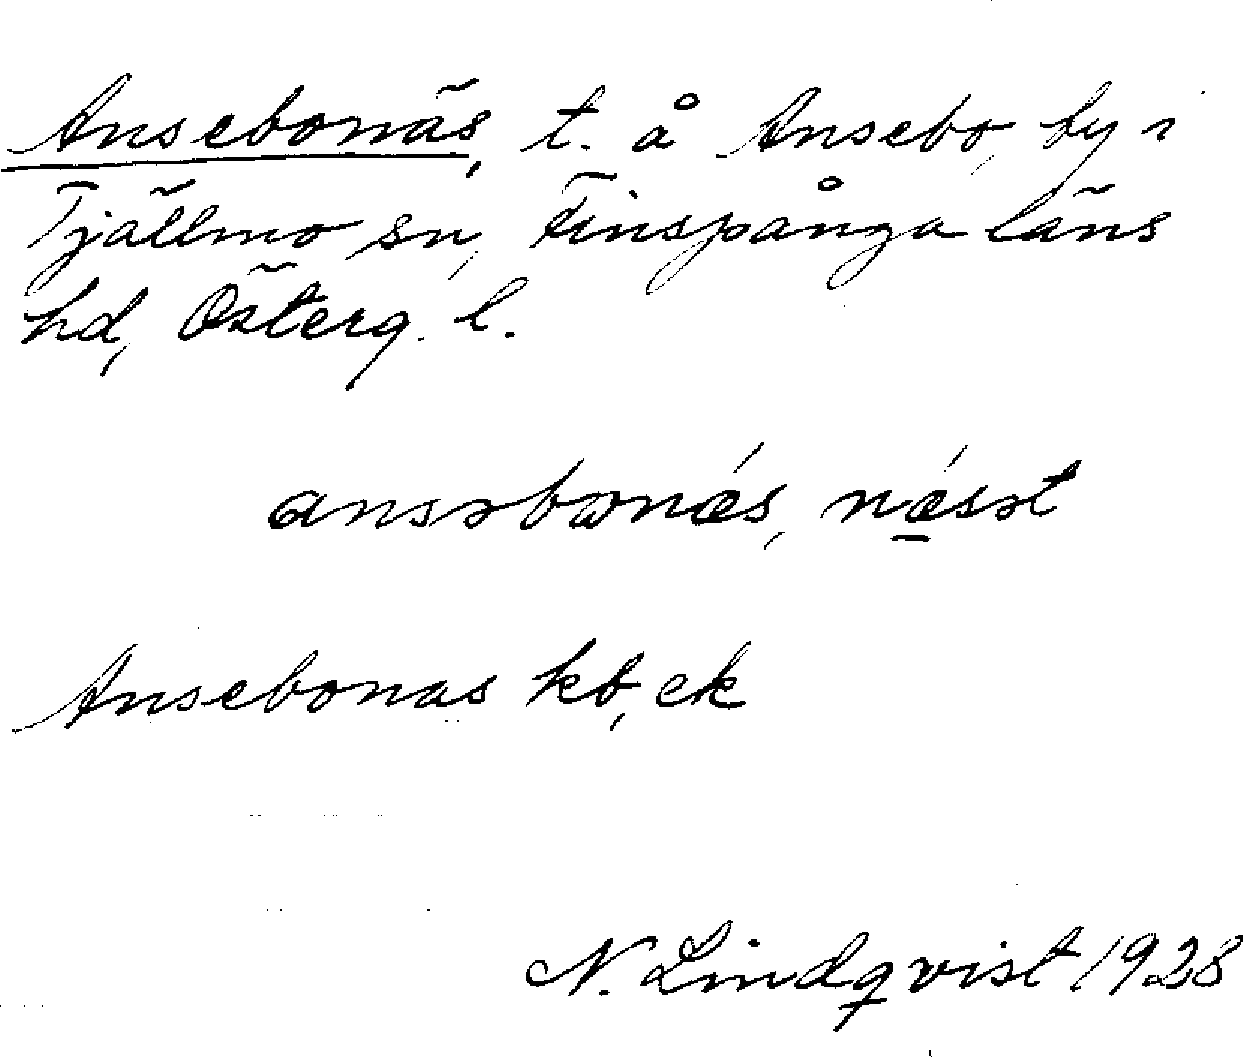 Ansebonäs, t. å Ansebo, by i
Tjällmo sn, Finspånga läns
hd, Österg. l.
ansəbωnǽs, nǽsət
Ansebonas kb, ek
N. Lindqvist 1928